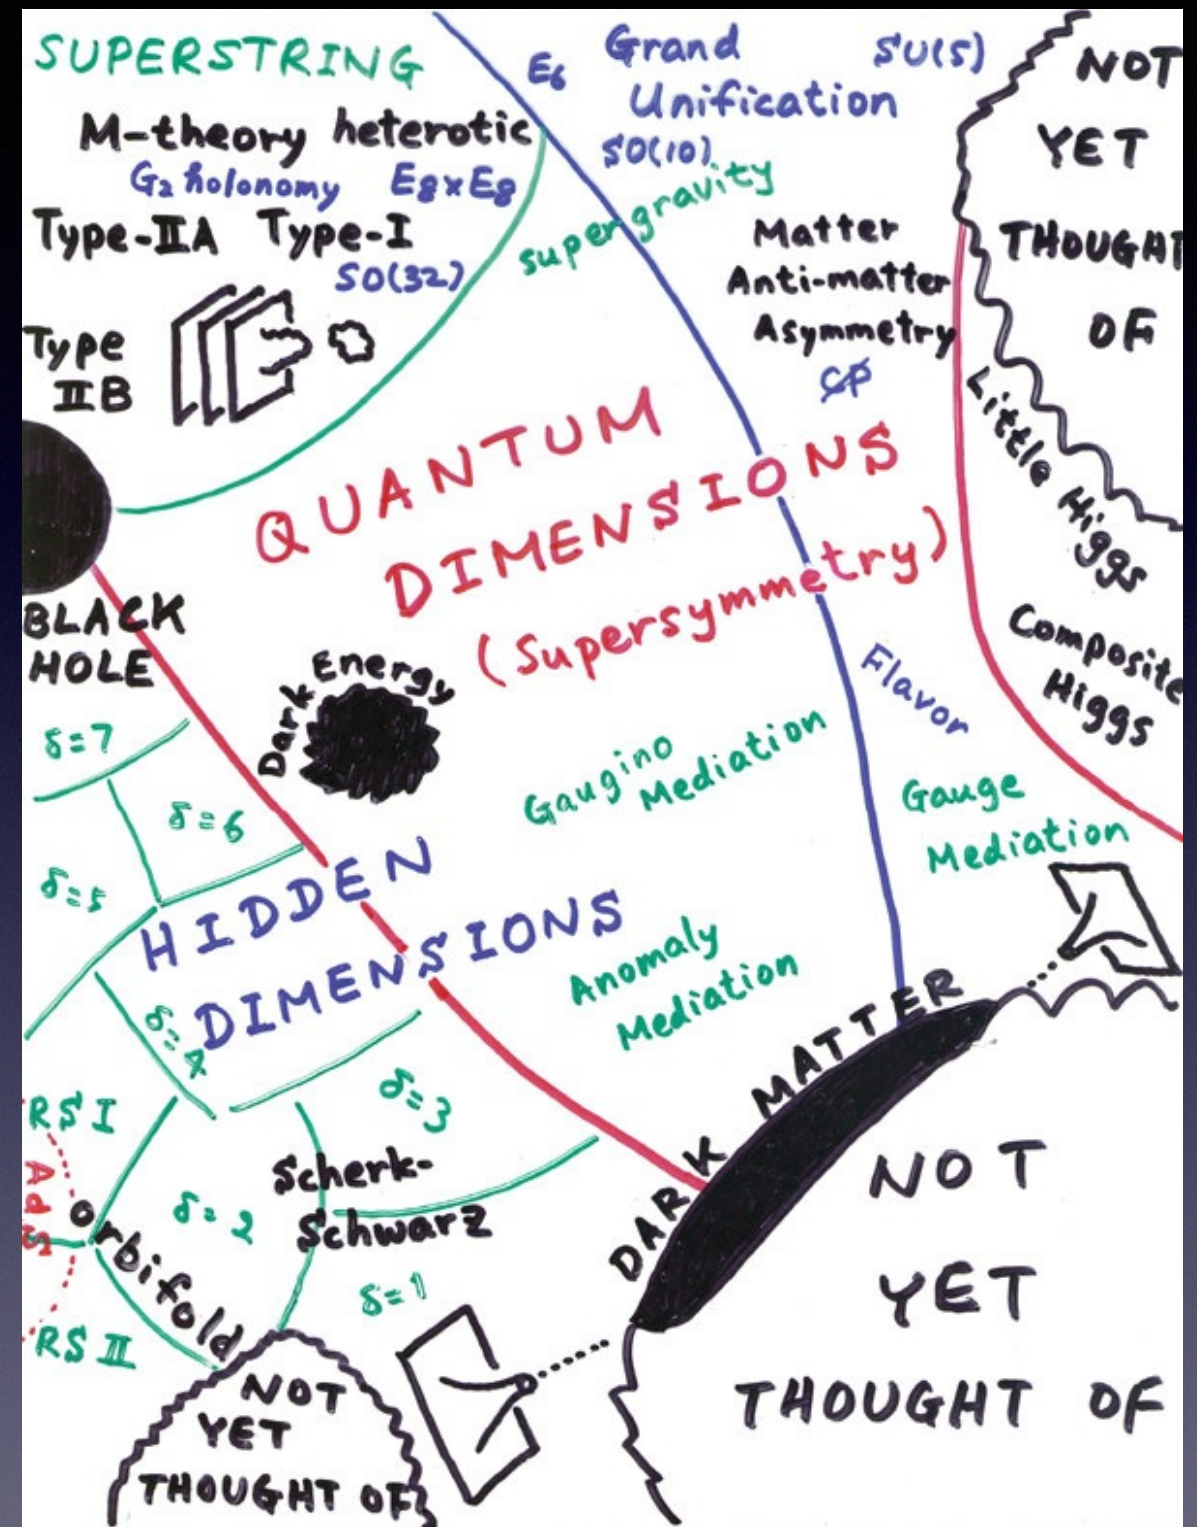 SUPERSTRING
M-theory heterotic
G₂ holonomy E₈×E₈
Type-IIA Type-I
SO(32)
Type
IIB
E₆
Grand
Unification
SU(5)
SO(10)
supergravity
Matter
Anti-matter
Asymmetry
CP
NOT
YET
THOUGHT
OF
Little Higgs
Composite
Higgs
QUANTUM
DIMENSIONS
(Supersymmetry)
BLACK
HOLE
Dark Energy
Flavor
Gaugino
Mediation
Gauge
Mediation
δ=7
δ=6
δ=5
HIDDEN
DIMENSIONS
Anomaly
Mediation
δ=4
δ=3
DARK MATTER
RS I
AdS
Scherk-
Schwarz
δ=2
orbifold
δ=1
RS II
NOT
YET
THOUGHT OF
NOT
YET
THOUGHT OF